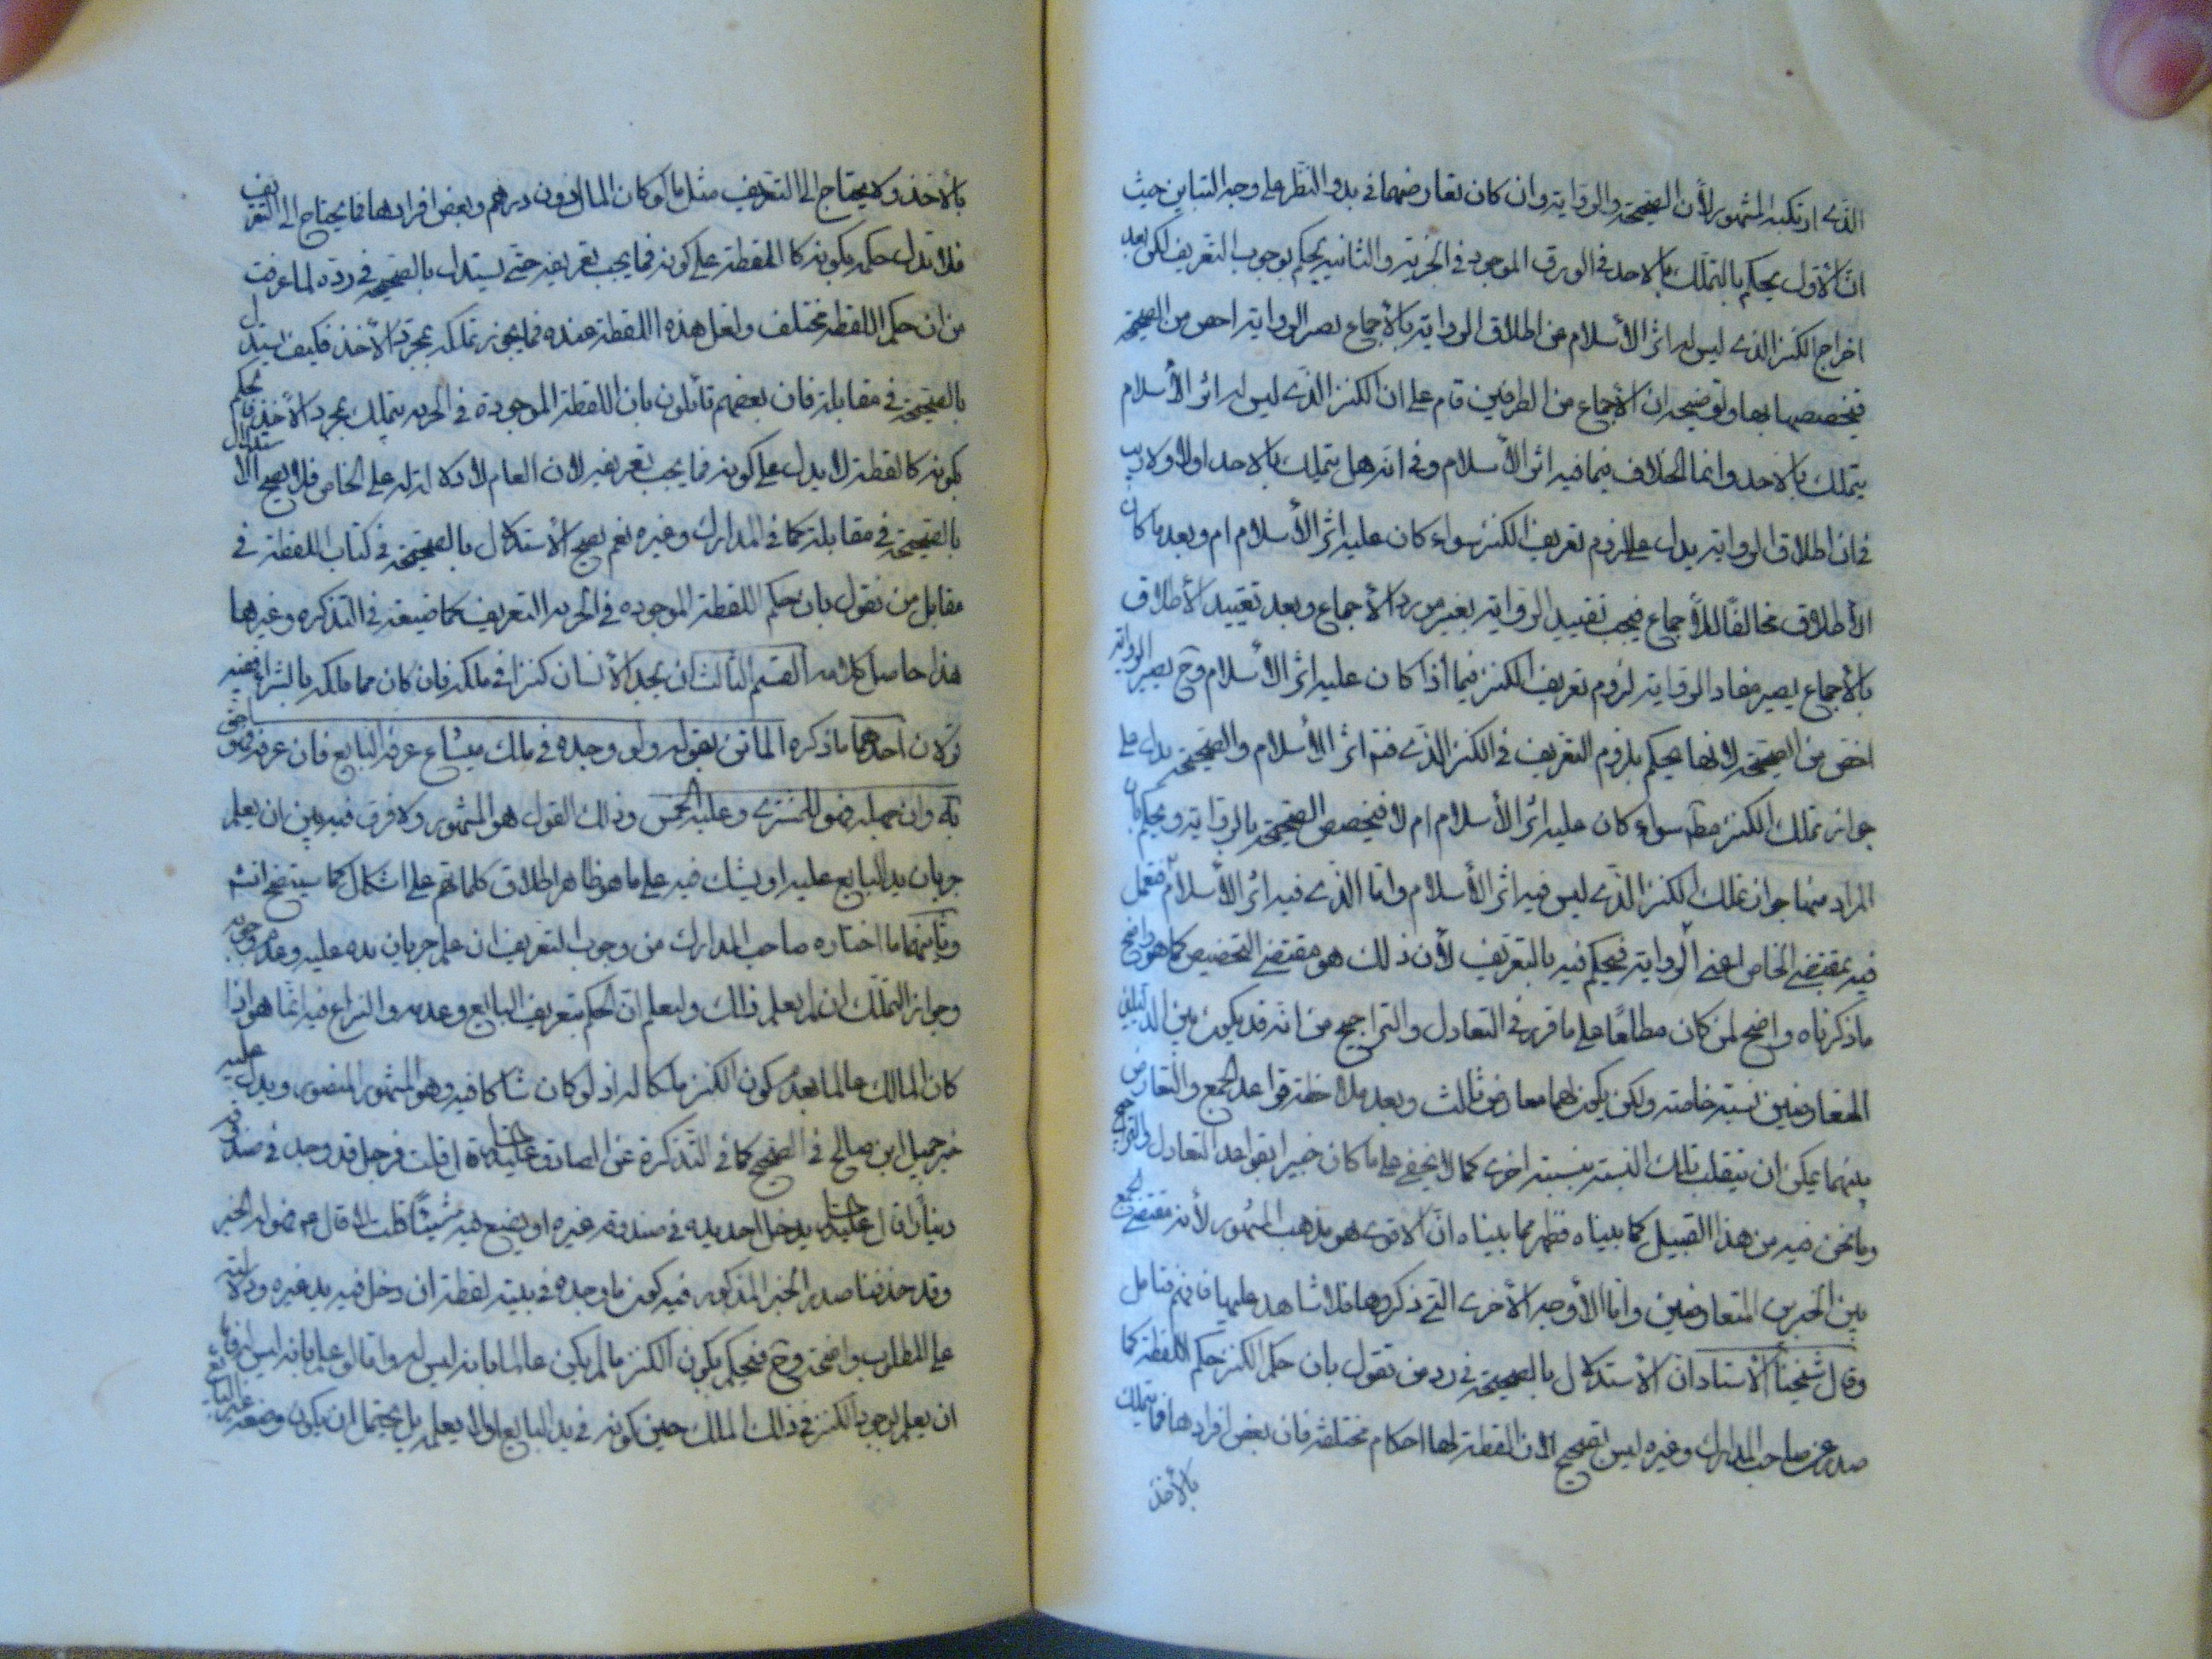 الذى ارتكبه المشهور لأن الصحيحة والرواية وان كان تعارضهما فى بدو النظر على وجه التباين حيث
ان الأول يحكم بالتملك بالاخذ فى الورق الموجود فى الخربة والثانية يحكم بوجوب التعريف لكن بعد
اخراج الكنز الذى ليس له اثر الأسلام من اطلاق الرواية بالأجماع يصير الرواية اخص من الصحيحة
فيخصصها بها وتوضيحه ان الأجماع من الطرفين قام على ان الكنز الذى ليس له اثر الأسلام
يتملك بالاخذ وانما الخلاف فيما فيه اثر الأسلام وفى انه هل يتملك بالاخذ اولا ولا ريب
فى ان اطلاق الرواية يدل على لزوم تعريف الكنز سواء كان عليه اثر الأسلام ام وبعد ما كان
الأطلاق مخالفًا للأجماع فيجب تقييد الرواية بغير مورد الأجماع وبعد تقييد الأطلاق
بالأجماع يصير مفاد الرواية لزوم تعريف الكنز فيما أذا كان عليه اثر الأسلام وح يصير الرواية
اخص من الصحيحة لانها يحكم بلزوم التعريف فى الكنز الذى فيه اثر الأسلام والصحيحة يدل على
جواز تملك الكنز مطّ سواء كان عليه اثر الأسلام ام لا فيخصص الصحيحة بالرواية ويحكم بان
المراد منها جواز تملك الكنز الذى ليس فيه اثر الأسلام واما الذى فيه اثر الأسلام فنعمل
فيه بمقتضى الخاص اعنى الرواية فيحكم فيه بالتعريف لأن ذلك هو مقتضى التخصيص كما هو واضح
ما ذكرناه واضح لمن كان مطلعًا على ما قرر فى التعادل والتراجيح من انه قد يكون بين الدليلين
المتعارضين نسبة خاصة ولكن يكون لهما معارض ثالث وبعد ملاحظة قواعد الجمع والتعارض
بينهما يمكن ان ينقلب تلك النسبة بنسبة اخرى كما لا يخفى على ما كان خبيرا بقواعد التعادل والتراجيح
وما نحن فيه من هذا القبيل كما بيناه فظهر مما بيناه ان الاقوى هو مذهب المشهور لأنه مقتضى الجمع
بين الخبرين المتعارضين واما الأوجه الأخرى التى ذكروها فلا شاهد عليها فافهم فتامل
وقال شيخنا الأستاد ان الأستدلال بالصحيحة فى رد من تقول بان حكم الكنز حكم اللقطة كما
صدر عن صاحب المدارك وغيره ليس بصحيح لان اللقطة لها احكام مختلفة فان بعض افرادها مما يتملك
بالأخذ
بالأخذ ولا يحتاج الى التعريف مثل ما لو كان المال دون درهم وبعض افرادها مما يحتاج الى التعريف
فلا تدل حكمه بكونه كاللقطة على كونه مما يجب تعريفه حتى يستدل بالصحيحة فى رده لما عرفت
من ان حكم اللقطة مختلف ولعل هذه اللقطة عنده مما يجوز تملكه بمجرد الأخذ فكيف يستدل
بالصحيحة فى مقابلة فان بعضهم قائلون بان اللقطة الموجودة فى الخربة يتملك بمجرد الأخذ فالحكم
بكونه كاللقطة لا يدل على كونه مما يجب تعريفه لان العام لا دلالة له على الخاص فلا يصح الاستدلال
بالصحيحة فى مقابلة كما فى المدارك وغيره نعم يصح الأستدلال بالصحيحة فى كتاب اللقطة فى
مقابل من تقول بان حكم اللقطة الموجوده فى الخربة التعريف كما ضيعه فى التذكره وغيرها
هذا حاصل كلامه القسم الثالث ان يجد الأنسان كنزا فى ملكه فان كان مما ملكه بالشراء ففيه
قولان احدهما ما ذكره الماتن بقوله ولو وجده فى ملك مبتاع عرفه البايع فان عرفه فهو احق
به وان جهله فهو للمشترى وعليه الخمس وذلك القول هو المشهور ولا فرق فيه بين ان يعلم
جريان يد البايع عليه او يشك فيه على ما هو ظاهر اطلاق كلماتهم على اشكال كما سيتضح انشم
وثانيهما ما اختاره صاحب المدارك من وجوب التعريف ان علم جريان يده عليه وعدم وجوبه
وجواز التملك ان لم يعلم ذلك وليعلم ان الحكم بتعريف البائع وعدمه والنزاع فيه انما هو اذا
كان المالك عالما بعدم كون الكنز ملكا له اذ لو كان شاكا فيه وهو المشهور المنصور ويدل عليه
خبر جميل ابن صالح فى الصحيح كما فى التذكرة عن الصادق عليه السلام قال قلت فرجل قد وجد فى صندوقه
دينارا قال عليه السلام يدخل احد يده فى صندوقه غيره او يضع فيه شيئًا قلت لا قال ع فهو له الخبر
وقد حذفنا صدر الخبر المذكور فيه كون ما وجده فى بيته لقطة ان دخل فيه يد غيره ودلالته
على المطلوب واضحة وح فيحكم بكون الكنز ما لم يكن عالما بانه ليس له واما لو علم بانه ليس له فاما
ان يعلم بوجود الكنز فى ذلك الملك حين كونه فى يد البايع اولا يعلم بل يحتمل ان يكون وضعه غير البايع